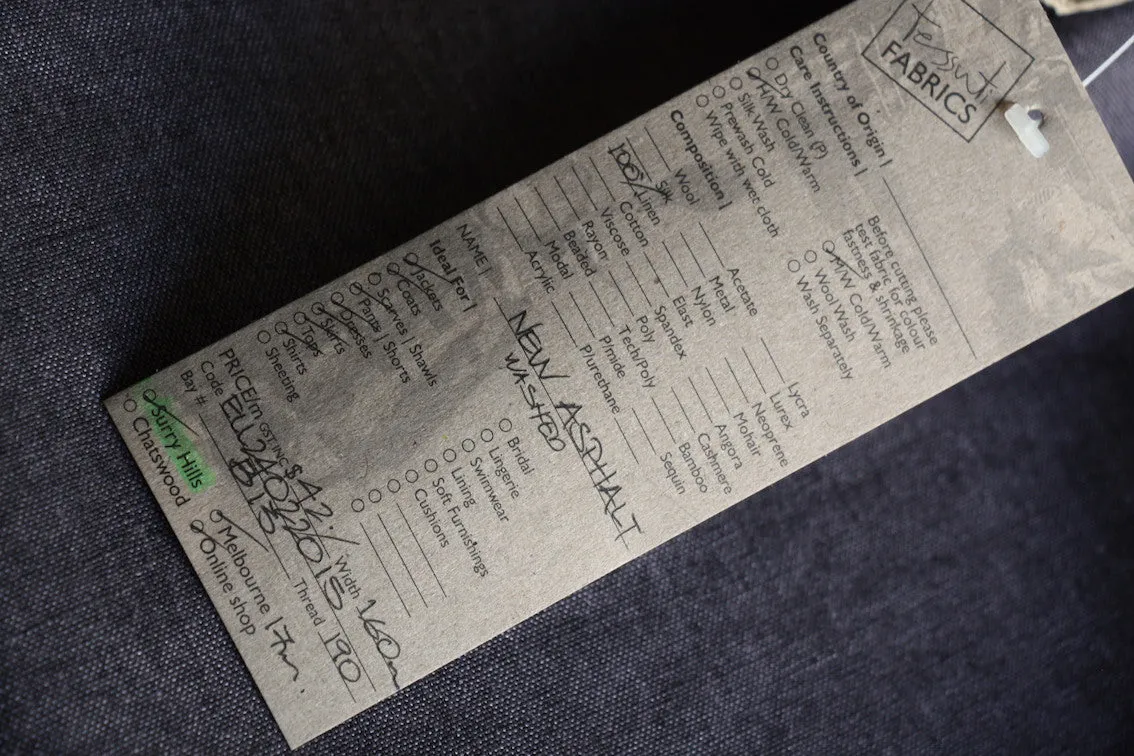 tessuti
FABRICS
Country of Origin |
Care Instructions |
Dry Clean (P)
H/W Cold/Warm
Silk Wash
Prewash Cold
Wipe with wet cloth
Before cutting please
test fabric for colour
fastness & shrinkage
H/W Cold/Warm
Wool Wash
Wash Separately
Composition |
Wool
Silk
100% Linen
Cotton
Viscose
Rayon
Beaded
Modal
Acrylic
Acetate
Metal
Nylon
Elast
Spandex
Poly
Tech/Poly
Pimide
Plurethane
Lycra
Lurex
Neoprene
Mohair
Angora
Cashmere
Bamboo
Sequin
NAME | NEW ASPHALT
WASHED
Ideal For |
Jackets
Coats
Scarves | Shawls
Pants | Shorts
Dresses
Skirts
Tops
Shirts
Sheeting
Bridal
Lingerie
Swimwear
Lining
Soft Furnishings
Cushions
PRICE/m GST INC $42/ Width 160m
Code Thread 190
Bay # B18
Surry Hills
Chatswood
Melbourne 17m.
Online shop